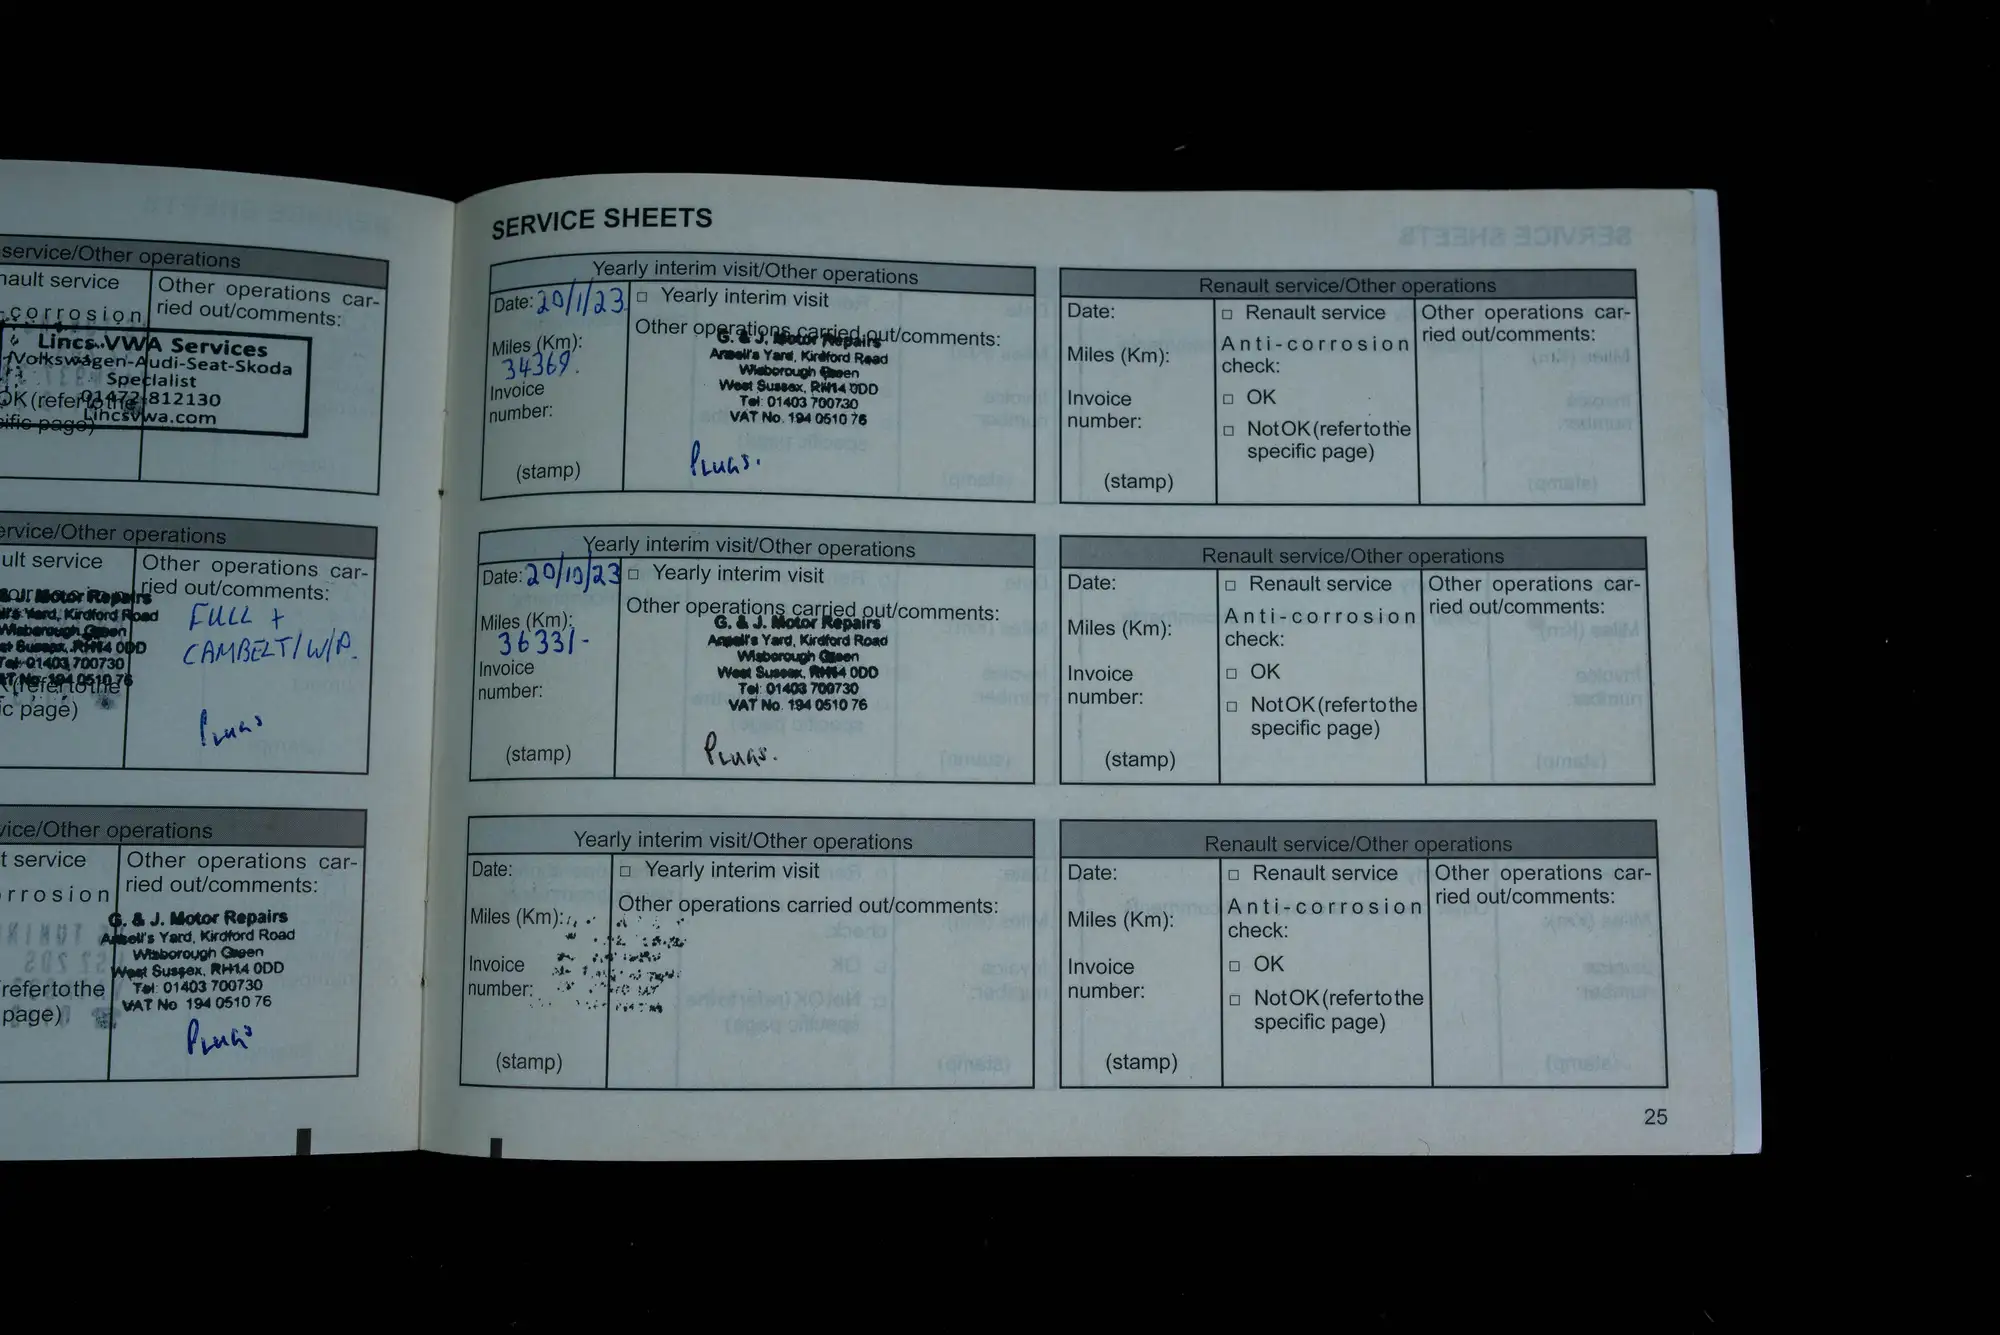 service/Other operations
Other operations car-
ried out/comments:
service
corrosion
Lincs VWA Services
Volkswagen-Audi-Seat-Skoda
Specialist
01472 812130
Lincsvwa.com
OK (refer to the
page)
Other operations
service
Other operations car-
ried out/comments:
FULL +
CAMBELT/W/P.
G. & J. Motor Repairs
Ansell's Yard, Kirdford Road
Wisborough Green
West Sussex, RH14 0DD
Tel: 01403 700730
VAT No. 194 0510 76
(refer to the
page)
Plugs
Other operations
service
Other operations car-
ried out/comments:
G. & J. Motor Repairs
Ansell's Yard, Kirdford Road
Wisborough Green
West Sussex, RH14 0DD
Tel: 01403 700730
VAT No 194 0510 76
refer to the
page)
Plugs
SERVICE SHEETS
Yearly interim visit/Other operations
Date: 20/1/23
□ Yearly interim visit
Other operations carried out/comments:
Miles (Km):
34369.
Invoice
number:
(stamp)
G. & J. Motor Repairs
Ansell's Yard, Kirdford Road
Wisborough Green
West Sussex, RH14 0DD
Tel: 01403 700730
VAT No. 194 0510 76
Plugs.
Renault service/Other operations
Date:
Miles (Km):
Invoice
number:
(stamp)
□ Renault service
Anti-corrosion
check:
□ OK
□ Not OK (refer to the
specific page)
Other operations car-
ried out/comments:
Yearly interim visit/Other operations
Date: 20/10/23
□ Yearly interim visit
Other operations carried out/comments:
Miles (Km):
36331-
Invoice
number:
(stamp)
G. & J. Motor Repairs
Ansell's Yard, Kirdford Road
Wisborough Green
West Sussex, RH14 0DD
Tel: 01403 700730
VAT No. 194 0510 76
Plugs.
Renault service/Other operations
Date:
Miles (Km):
Invoice
number:
(stamp)
□ Renault service
Anti-corrosion
check:
□ OK
□ Not OK (refer to the
specific page)
Other operations car-
ried out/comments:
Yearly interim visit/Other operations
Date:
Miles (Km):
Invoice
number:
(stamp)
□ Yearly interim visit
Other operations carried out/comments:
Renault service/Other operations
Date:
Miles (Km):
Invoice
number:
(stamp)
□ Renault service
Anti-corrosion
check:
□ OK
□ Not OK (refer to the
specific page)
Other operations car-
ried out/comments:
25